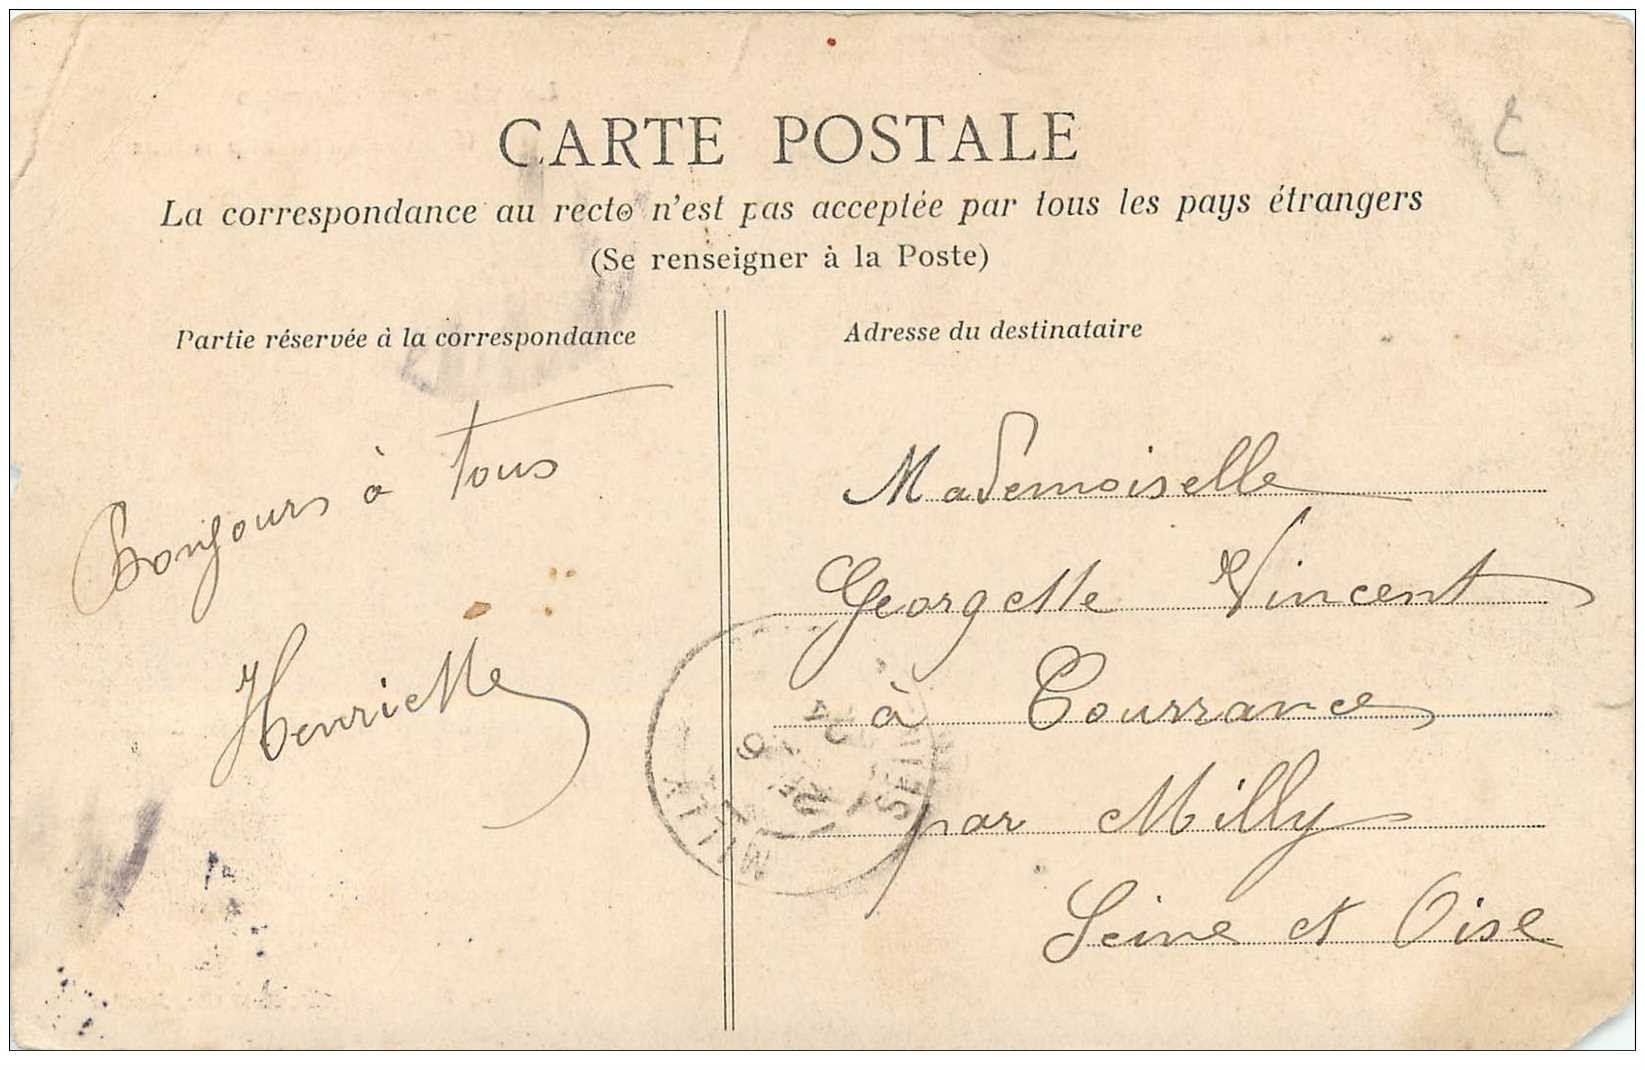 CARTE POSTALE
La correspondance au recto n'est pas acceptée par tous les pays étrangers
(Se renseigner à la Poste)
Partie réservée à la correspondance
Bonjours à tous
Henriette
Adresse du destinataire
Mademoiselle
Georgette Vincent
à Courrances
par Milly
Seine et Oise
MILLY
SEINE